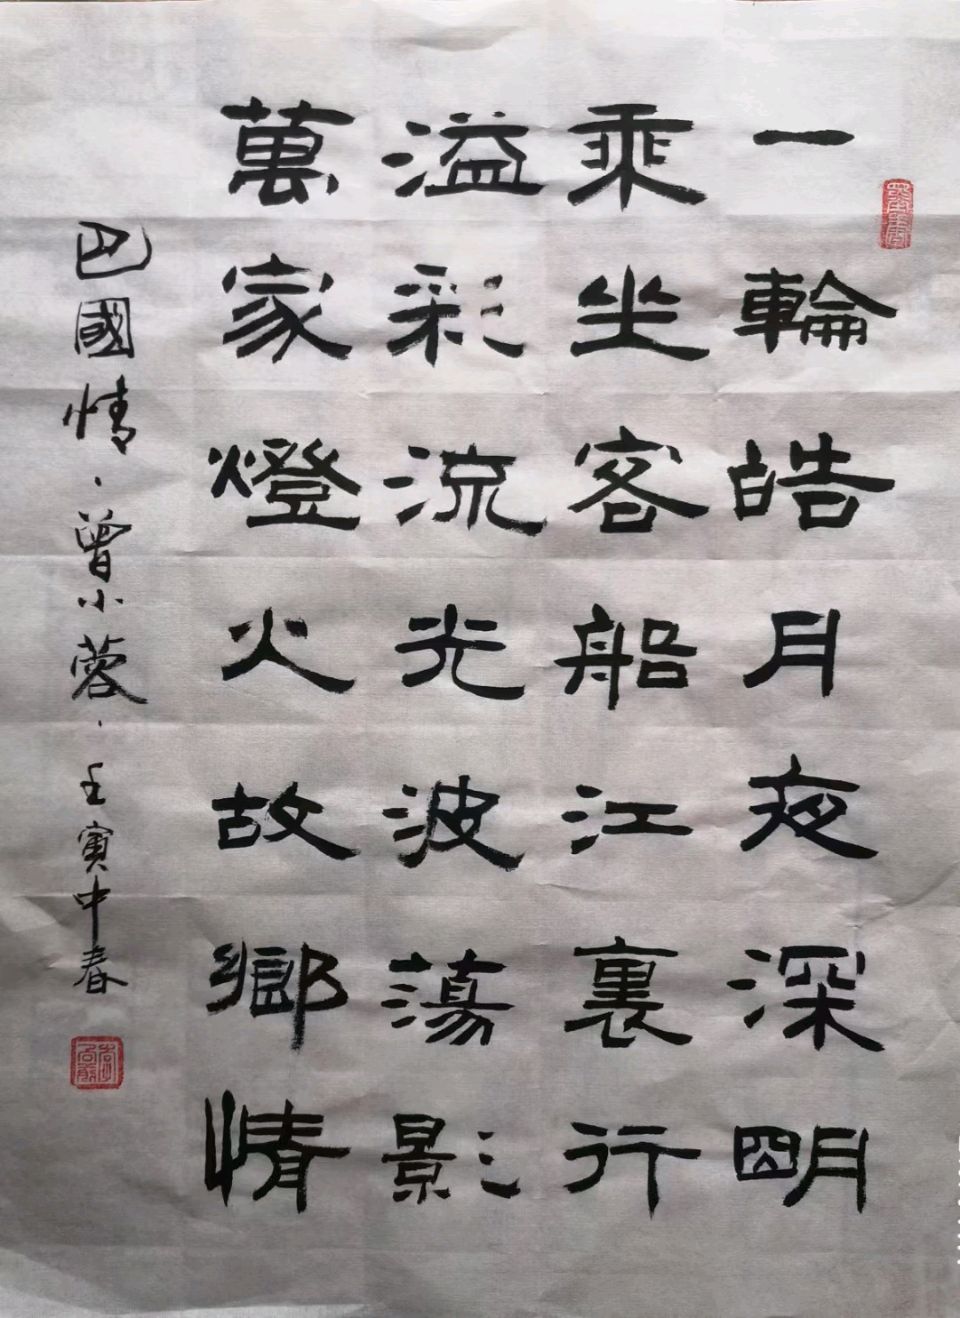 一輪皓月夜深明
乘坐客船江裏行
溢彩流光波蕩影
萬家燈火故鄉情
巴國情·曾小蓉·壬寅中春